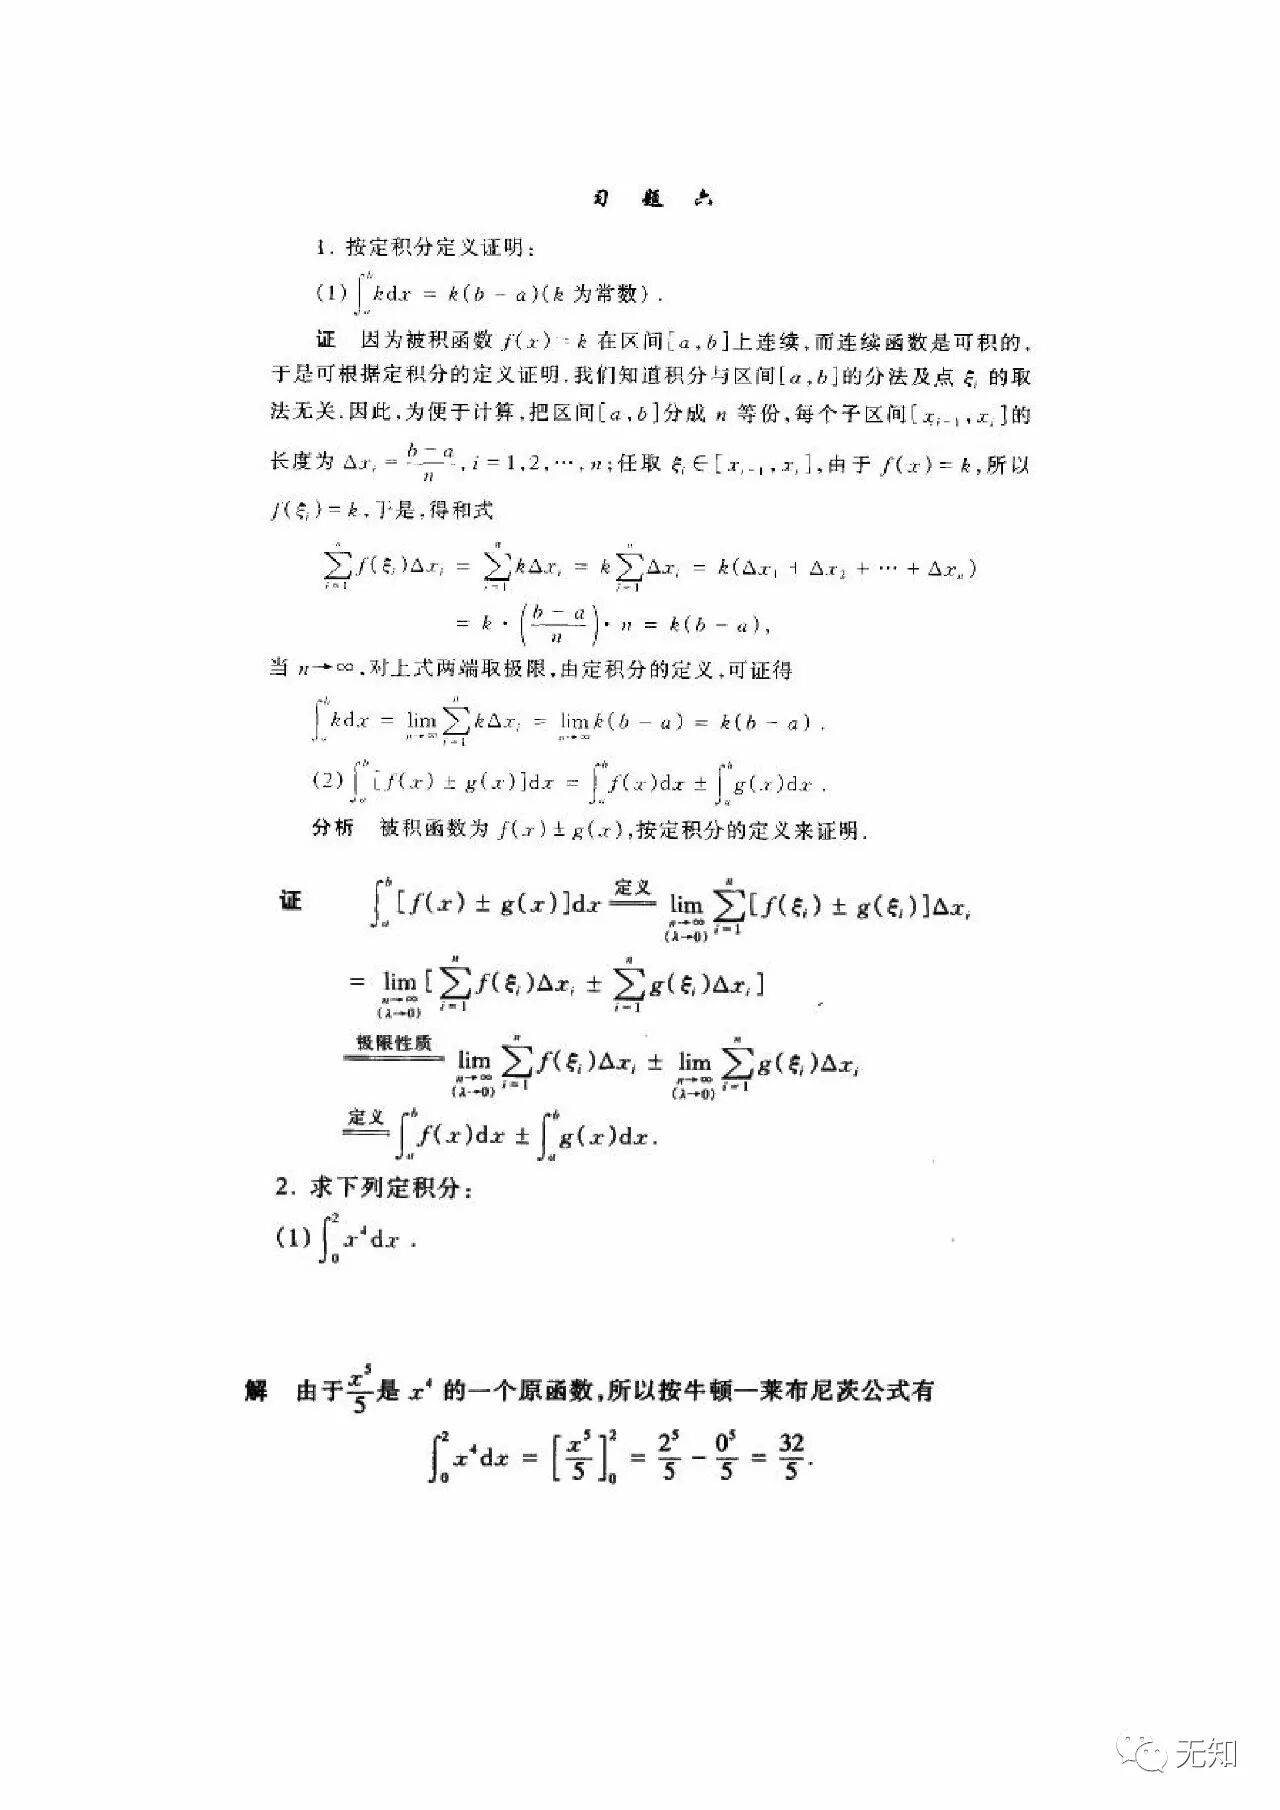 习 题 六
1. 按定积分定义证明:
(1) ∫_a^b kdx = k(b − a)(k 为常数).
证 因为被积函数 f(x) = k 在区间[a,b]上连续,而连续函数是可积的,
于是可根据定积分的定义证明.我们知道积分与区间[a,b]的分法及点 ξ_i 的取
法无关.因此,为便于计算,把区间[a,b]分成 n 等份,每个子区间[x_{i-1},x_i]的
长度为 Δx_i = (b − a)/n, i = 1,2,⋯,n;任取 ξ_i ∈ [x_{i-1},x_i],由于 f(x) = k,所以
f(ξ_i) = k,于是,得和式
∑_{i=1}^n f(ξ_i)Δx_i = ∑_{i=1}^n kΔx_i = k∑_{i=1}^n Δx_i = k(Δx_1 + Δx_2 + ⋯ + Δx_n)
= k · ((b − a)/n) · n = k(b − a),
当 n→∞,对上式两端取极限,由定积分的定义,可证得
∫_a^b kdx = lim_{n→∞} ∑_{i=1}^n kΔx_i = lim_{n→∞} k(b − a) = k(b − a).
(2) ∫_a^b [f(x) ± g(x)]dx = ∫_a^b f(x)dx ± ∫_a^b g(x)dx.
分析 被积函数为 f(x) ± g(x),按定积分的定义来证明.
证 ∫_a^b [f(x) ± g(x)]dx =定义= lim_{n→∞ (λ→0)} ∑_{i=1}^n [f(ξ_i) ± g(ξ_i)]Δx_i
= lim_{n→∞ (λ→0)} [∑_{i=1}^n f(ξ_i)Δx_i ± ∑_{i=1}^n g(ξ_i)Δx_i]
=极限性质= lim_{n→∞ (λ→0)} ∑_{i=1}^n f(ξ_i)Δx_i ± lim_{n→∞ (λ→0)} ∑_{i=1}^n g(ξ_i)Δx_i
=定义= ∫_a^b f(x)dx ± ∫_a^b g(x)dx.
2. 求下列定积分:
(1) ∫_0^2 x^4 dx.
解 由于 x^5/5 是 x^4 的一个原函数,所以按牛顿—莱布尼茨公式有
∫_0^2 x^4 dx = [x^5/5]_0^2 = 2^5/5 − 0^5/5 = 32/5.
无知